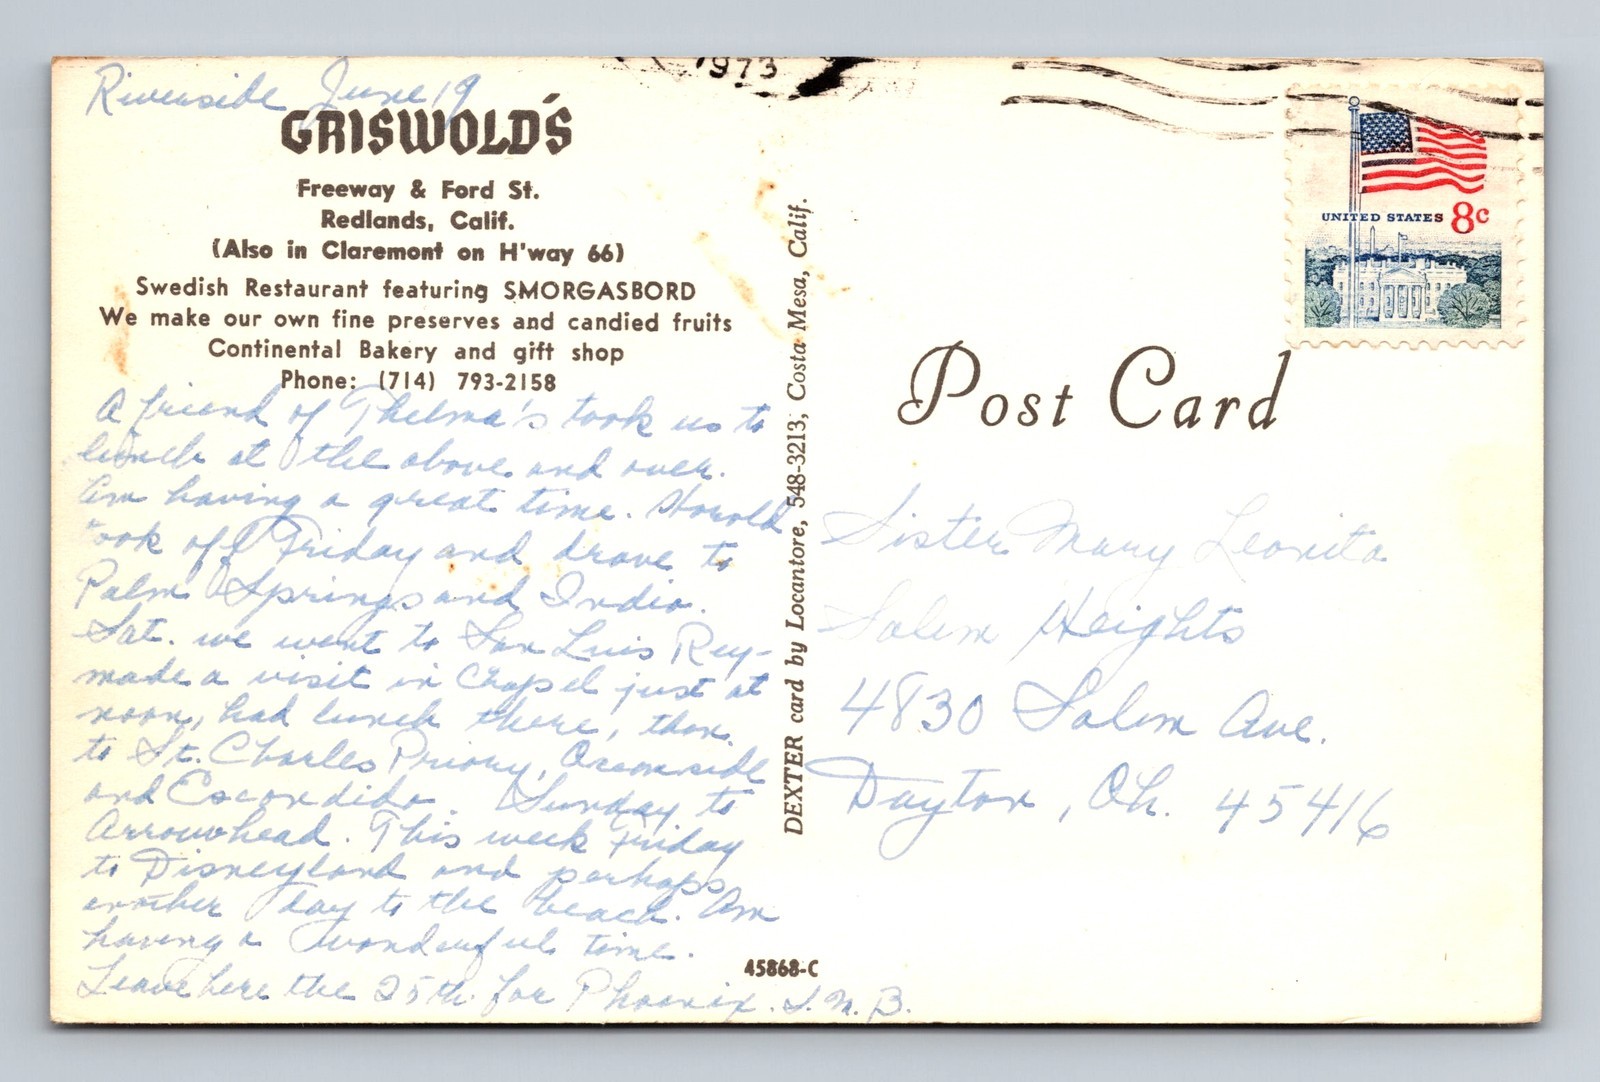 Riverside June 19
GRISWOLD'S
Freeway & Ford St.
Redlands, Calif.
(Also in Claremont on H'way 66)
Swedish Restaurant featuring SMORGASBORD
We make our own fine preserves and candied fruits
Continental Bakery and gift shop
Phone: (714) 793-2158
A friend of Thelma's took us to
lunch at the above and over.
Am having a great time. Harold
took off Friday and drove to
Palm Springs and Indio.
Sat. we went to San Luis Rey-
made a visit in Chapel just at
noon, had lunch there, then
to St. Charles Priory, Oceanside
and Escondido. Sunday to
Arrowhead. This week Friday
to Disneyland and perhaps
another day to the beach. Am
having a wonderful time.
Leave here the 25th for Phoenix. S.M.B.
DEXTER card by Locantore, 548-3213, Costa Mesa, Calif.
45868-C
1973
UNITED STATES 8c
Post Card
Sister Mary Leonita
Salem Heights
4830 Salem Ave.
Dayton, Oh. 45416